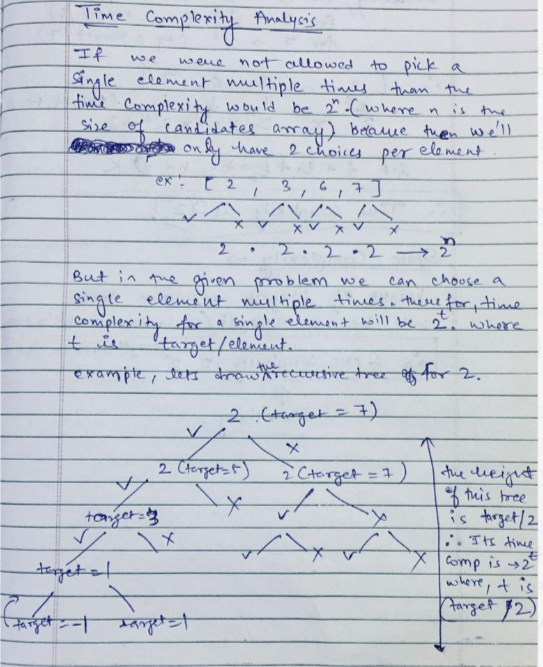 Time Complexity Analysis
If we were not allowed to pick a
single element multiple times than the
time complexity would be 2^n. (where n is the
size of candidates array) because then we'll
only have 2 choices per element.
ex: [ 2 , 3 , 6 , 7 ]
✓ x ✓ x ✓ x ✓ x
2 . 2 . 2 . 2 → 2^n
But in the given problem we can choose a
single element multiple times. there for, time
complexity for a single element will be 2^t. where
t is target/element.
example, lets draw the recursive tree for 2.
2 (target = 7)
✓ x
2 (target=5) 2 (target = 7)
✓ x ✓ x
target=3
✓ x ✓ x ✓ x
target = 1
target = -1 target=1
the height
of this tree
is target/2
∴ Its time
comp is → 2^t
where, t is
(target / 2)